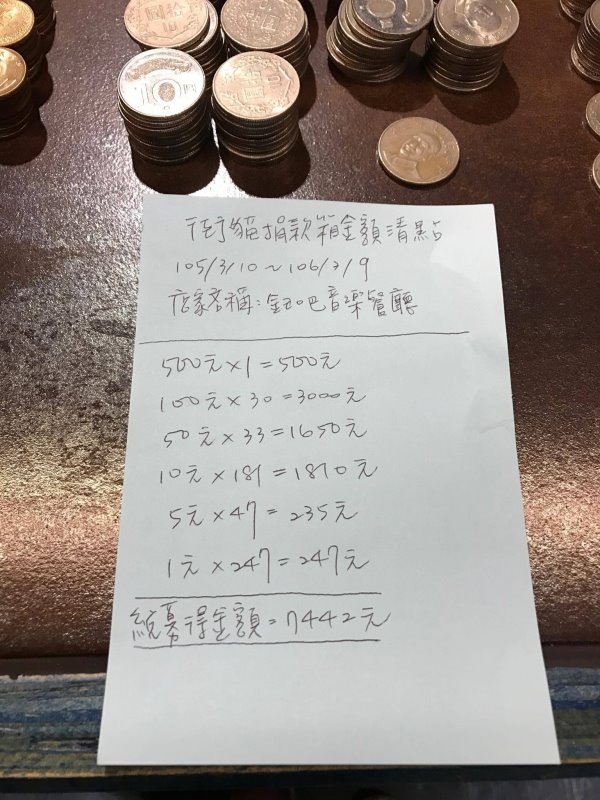 街貓捐款箱金額清點
105/3/10~106/2/9
店家名稱:釶吧音樂餐廳
500元×1=500元
100元×30=3000元
50元×33=1650元
10元×181=1810元
5元×47=235元
1元×247=247元
總募得金額=7442元